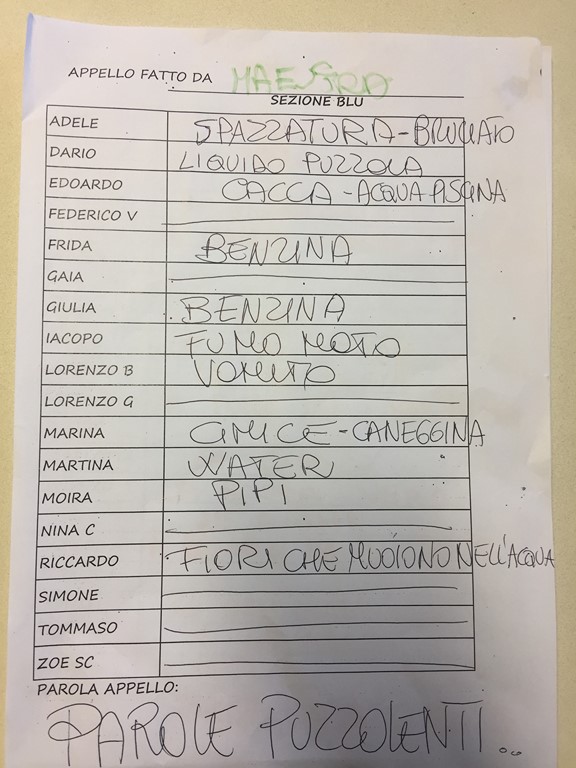 APPELLO FATTO DA MAESTRA
SEZIONE BLU
ADELE SPAZZATURA-BRUCIATO
DARIO LIQUIDO PUZZOLA
EDOARDO CACCA-ACQUA PISCINA
FEDERICO V
FRIDA BENZINA
GAIA
GIULIA BENZINA
IACOPO FUMO MOTO
LORENZO B VOMITO
LORENZO G
MARINA CIMICE-CANEGGINA
MARTINA WATER
MOIRA PIPI
NINA C
RICCARDO FIORI CHE MUOIONO NELL'ACQUA
SIMONE
TOMMASO
ZOE SC
PAROLA APPELLO:
PAROLE PUZZOLENTI...